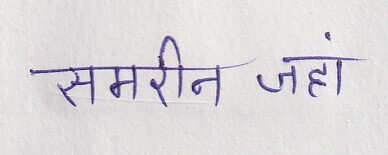 समरीन जहां